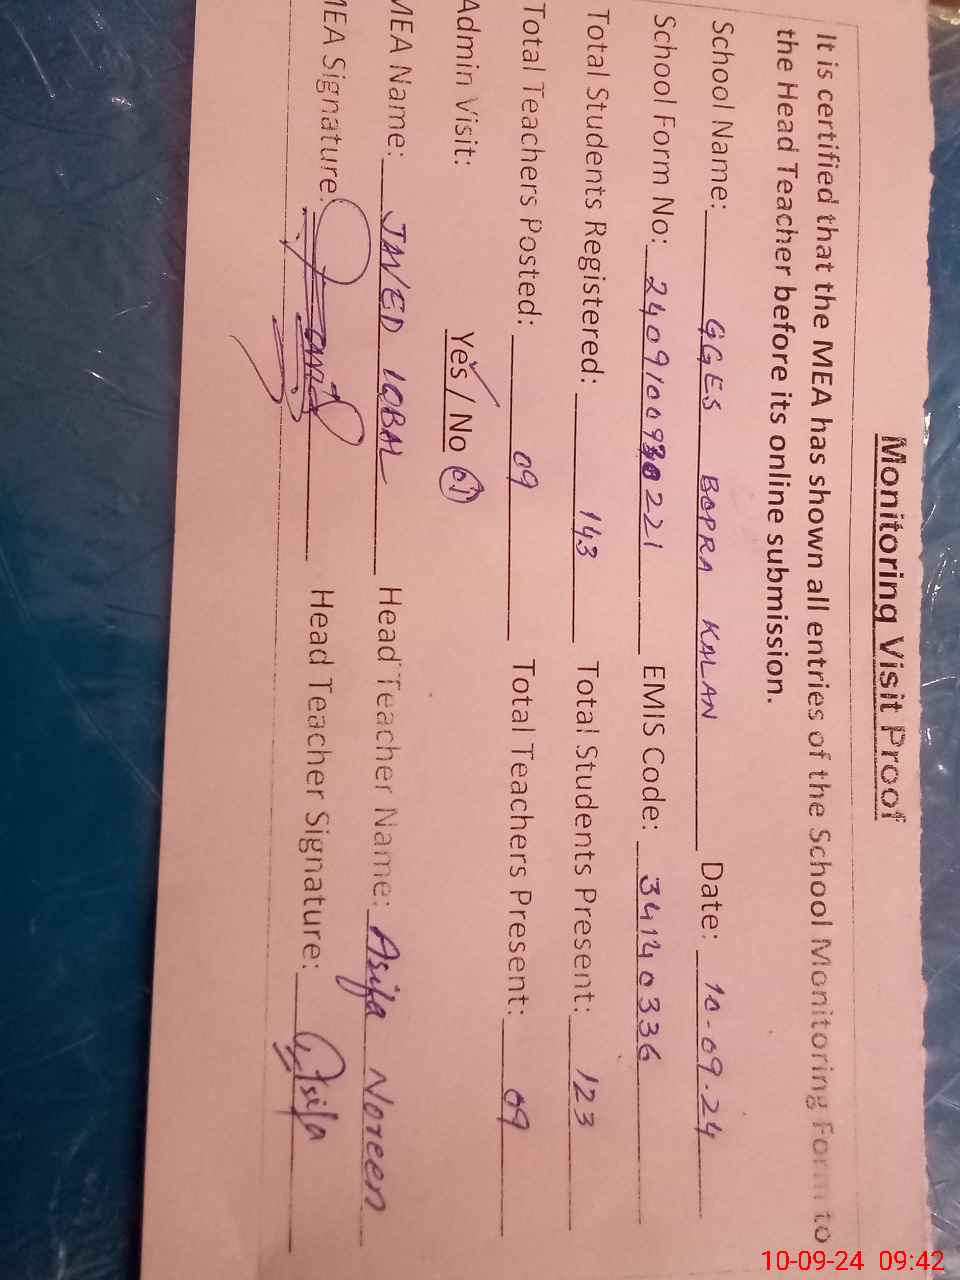 Monitoring Visit Proof
It is certified that the MEA has shown all entries of the School Monitoring Form to
the Head Teacher before its online submission.
School Name: GGES BOPRA KALAN Date: 10-09-24
School Form No: 2409100930221 EMIS Code: 34140336
Total Students Registered: 143 Total Students Present: 123
Total Teachers Posted: 09 Total Teachers Present: 09
Admin Visit: Yes / No 01
MEA Name: JAVED IQBAL Head Teacher Name: Asifa Noreen
MEA Signature: Head Teacher Signature: Asifa
10-09-24 09:42